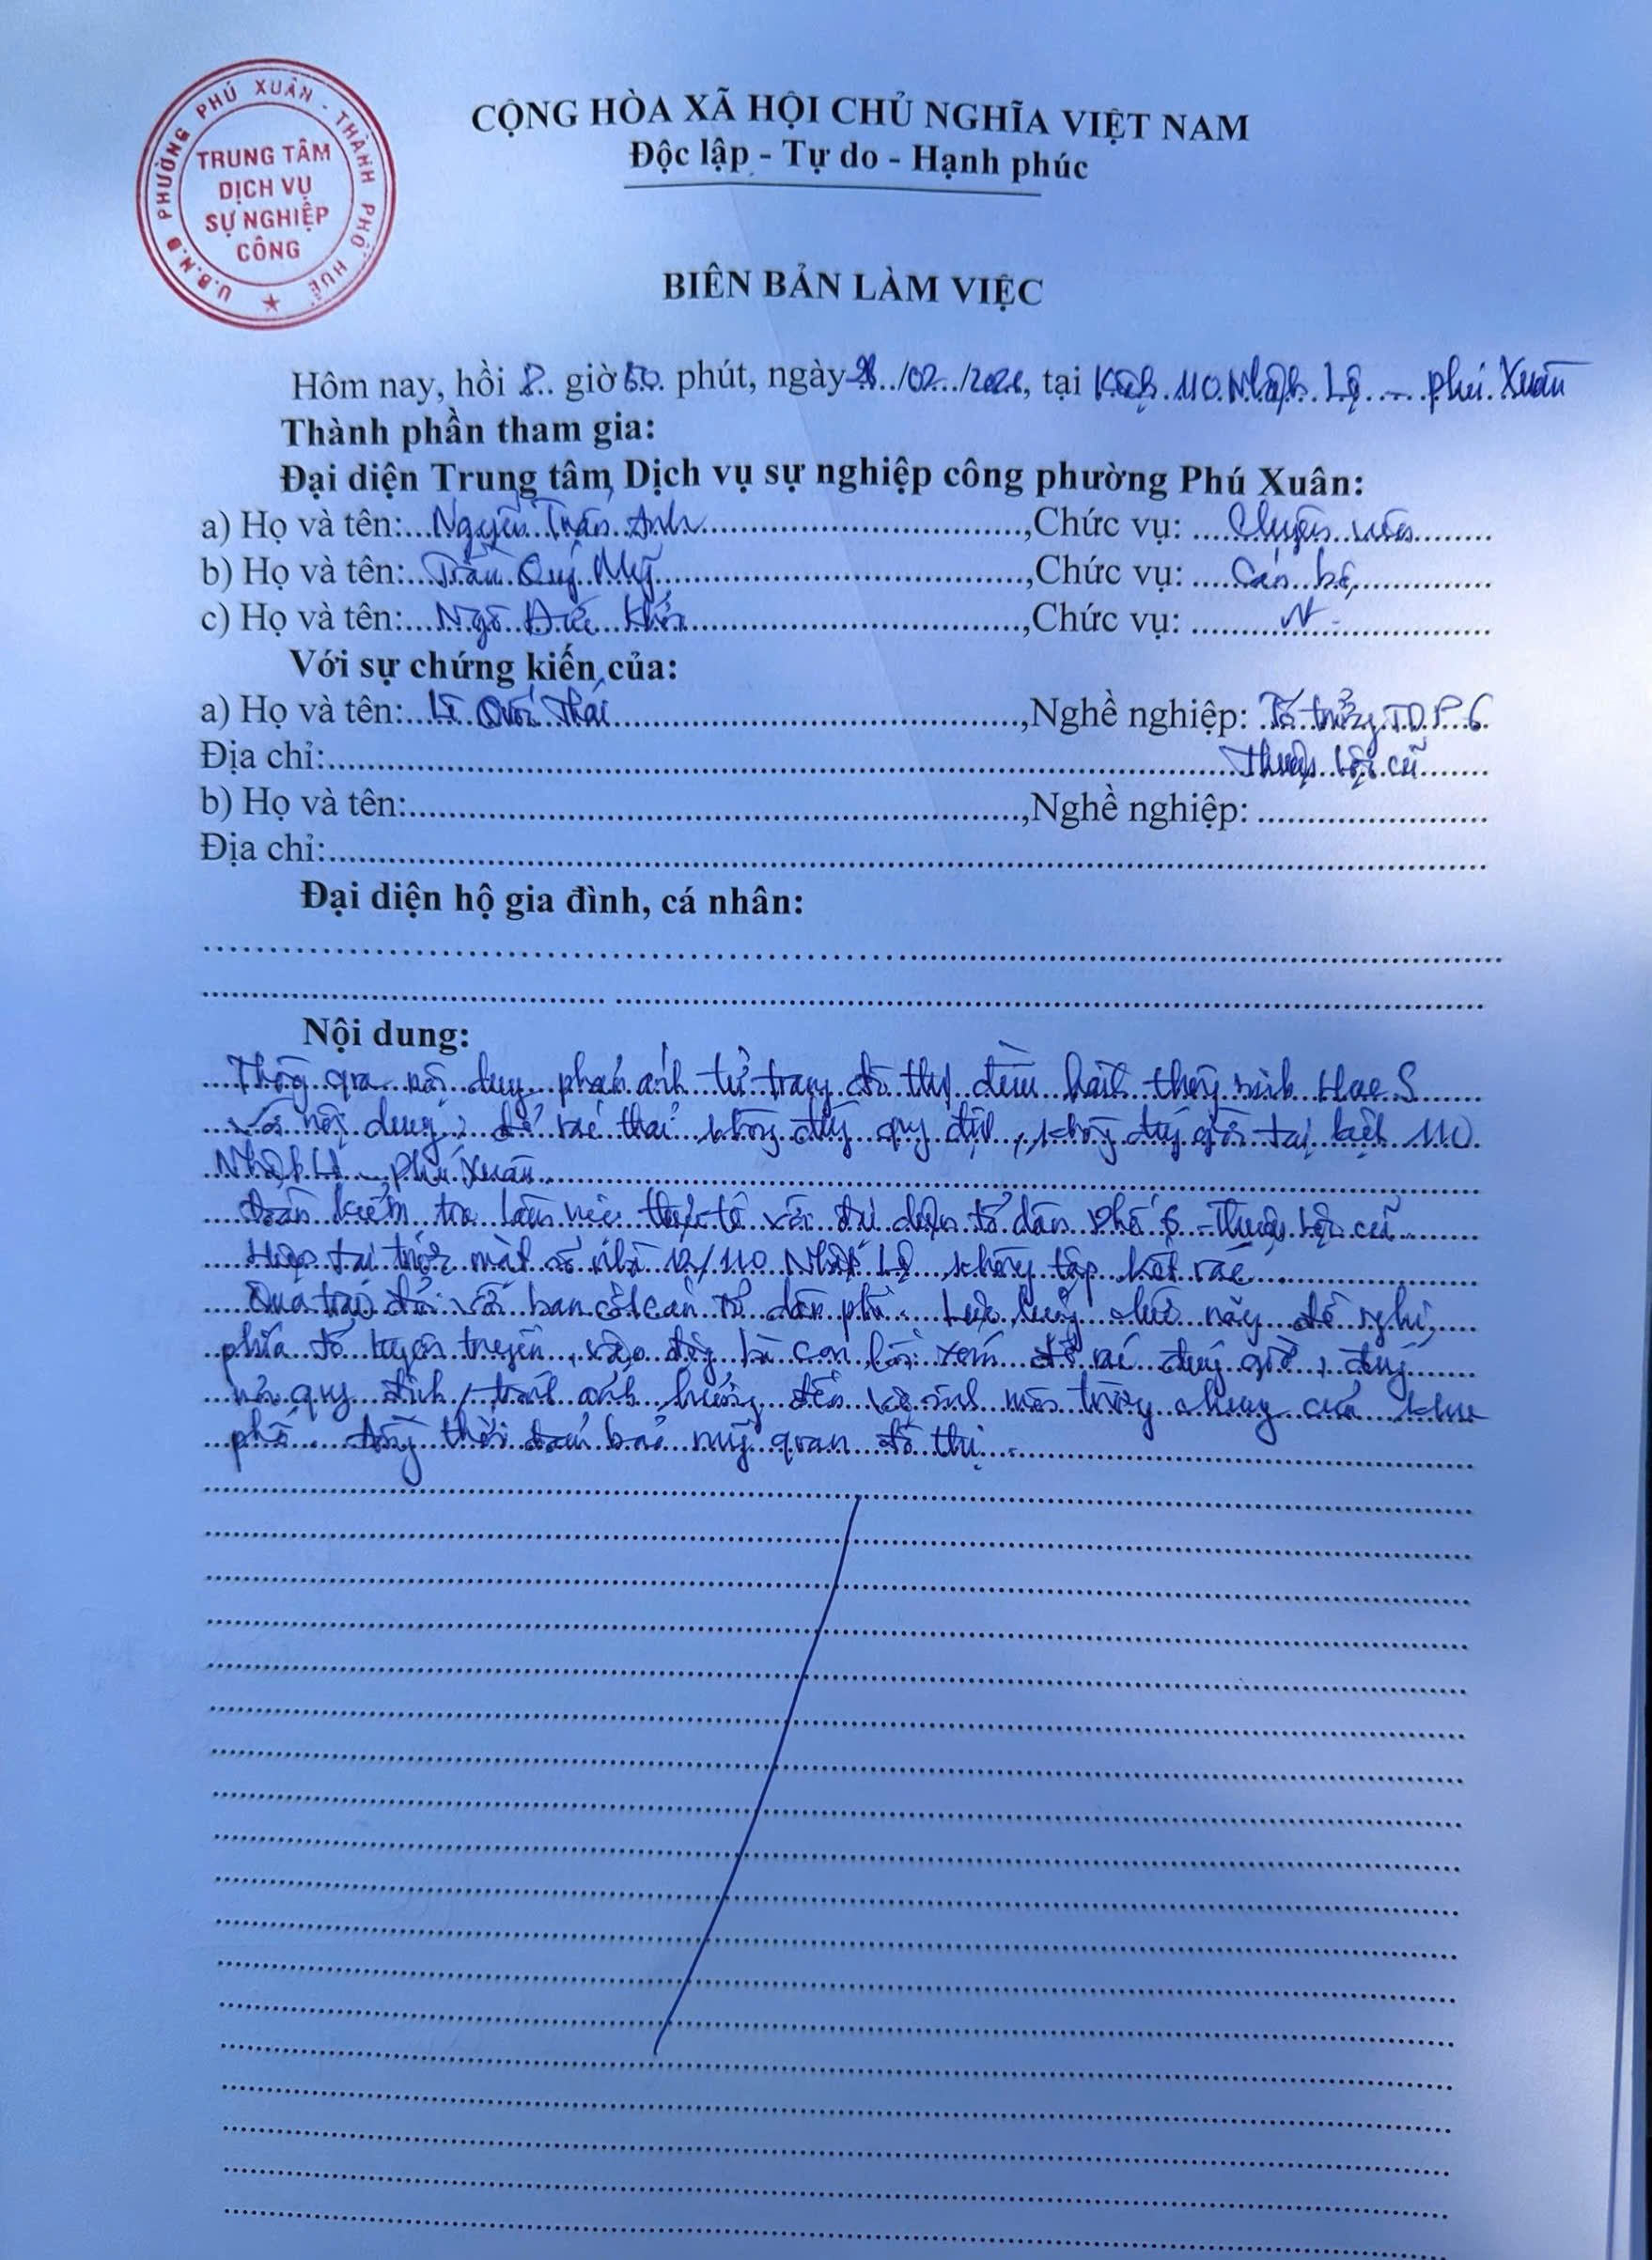 U.B.N.D PHƯỜNG PHÚ XUÂN - THÀNH PHỐ HUẾ
TRUNG TÂM
DỊCH VỤ
SỰ NGHIỆP
CÔNG
CỘNG HÒA XÃ HỘI CHỦ NGHĨA VIỆT NAM
Độc lập - Tự do - Hạnh phúc
BIÊN BẢN LÀM VIỆC
Hôm nay, hồi 8 giờ 50 phút, ngày /02/2026, tại Kiệt 110 Nhật Lệ - Phú Xuân
Thành phần tham gia:
Đại diện Trung tâm Dịch vụ sự nghiệp công phường Phú Xuân:
a) Họ và tên: Nguyễn Trần Anh, Chức vụ: Chuyên viên
b) Họ và tên: Trần Quý Mỹ, Chức vụ: Cán bộ
c) Họ và tên: Ngô Đức, Chức vụ:
Với sự chứng kiến của:
a) Họ và tên: Lê Quốc Thái, Nghề nghiệp: Tổ trưởng TDP 6
Địa chỉ: Thuận Lộc cũ
b) Họ và tên:, Nghề nghiệp:
Địa chỉ:
Đại diện hộ gia đình, cá nhân:
Nội dung:
Thông qua nội dung phản ánh từ trang đô thị điều hành thông minh Hue S
với nội dung: để rác thải không đúng quy định, không đúng giờ tại kiệt 110
Nhật Lệ - Phú Xuân
Đoàn kiểm tra làm việc thực tế với đại diện tổ dân phố 6 - Thuận Lộc cũ
Hiện tại trước mặt số nhà 12/110 Nhật Lệ không tập kết rác
Qua trao đổi với ban cán tổ dân phố. Lực lượng chức năng đề nghị
phía tổ tuyên truyền, vận động bà con lối xóm để rác đúng giờ, đúng
quy định, tránh ảnh hưởng đến vệ sinh môi trường chung của khu
phố. đồng thời đảm bảo mỹ quan đô thị.